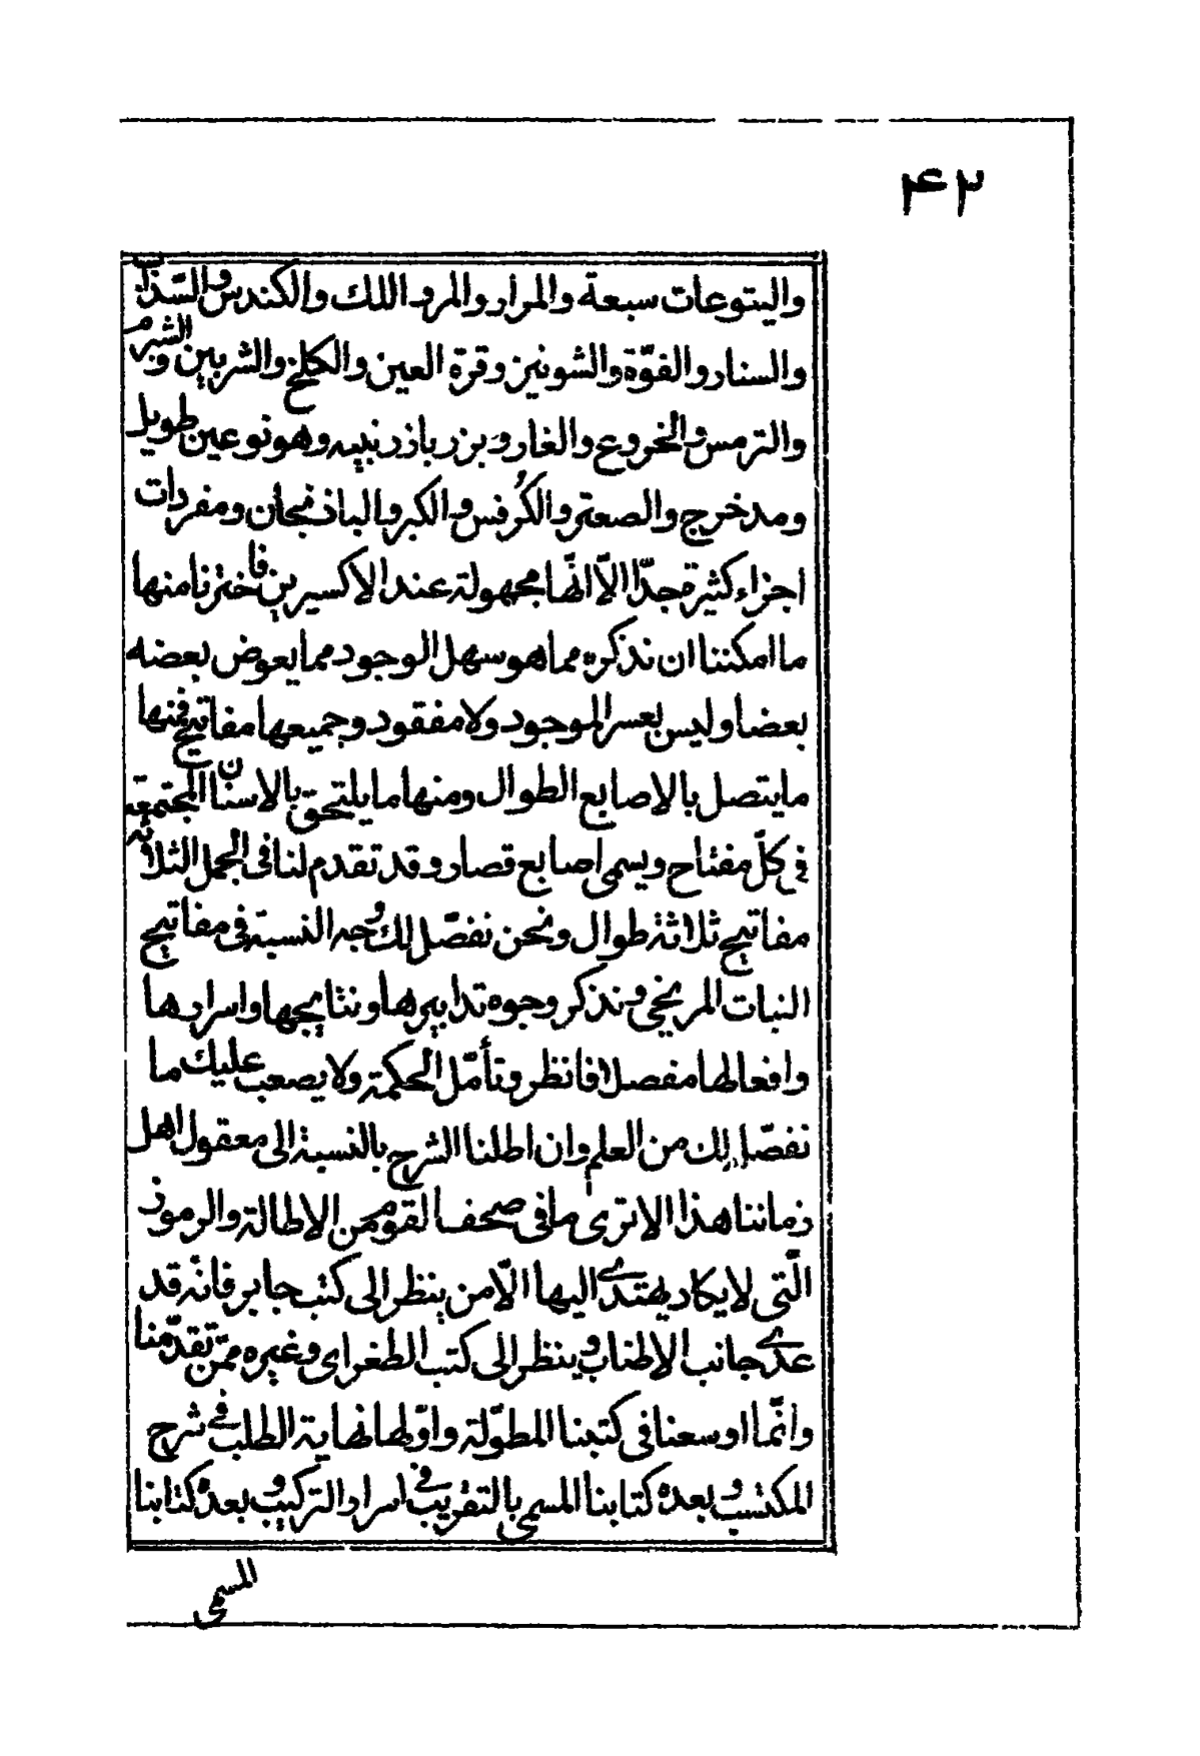 ۴۲
واليتوعات سبعة والمرار والمر واللك والكندس والسذاب
والسنار والفوّة والشونيز وقرة العين والكلخ والشربين والشبرم
والترمس والخروع والغار وبزر باذرنبيه وهو نوعين طويل
ومدخرج والصعتر والكُرفس والكبر والباذنجان ومفردات
اجزاء كثيرة جدّا الّا انّها مجهولة عند الاكسيريين فاخترنا منها
ما امكننا ان نذكره مما هو سهل الوجود مما يعوض بعضه
بعضا وليس بعسر الموجود ولا مفقود وجميعها مفاتيح فمنها
ما يتصل بالاصابع الطوال ومنها ما يلتحق بالاسنان المجتمعة
فى كلّ مفتاح ويسمى اصابع قصار وقد تقدم لنا فى الجمل الثلاثة
مفاتيح ثلاثة طوال ونحن نفصّل لك وجه النسبة فى مفاتيح
النبات المريخى ونذكر وجوه تدابيرها ونتايجها واسرارها
وافعالها مفصلا فانظر وتأمّل الحكمة ولا يصعب عليك ما
نفصّل لك من العلم وان اطلنا الشرح بالنسبة الى معقول اهل
زماننا هذا الا ترى ما فى صحف القوم من الاطالة والرموز
الّتى لا يكاد يهتدى اليها الّا من ينظر الى كتب جابر فانّه قد
عدى جانب الاطناب وينظر الى كتب الطغراى وغيره ممّن تقدّمنا
وانّما اوسعنا فى كتبنا المطوّلة واوّلها نهاية الطلب فى شرح
المكتسب وبعده كتابنا المسمى بالتقريب فى اسرار التركيب وبعده كتابنا
المسمى